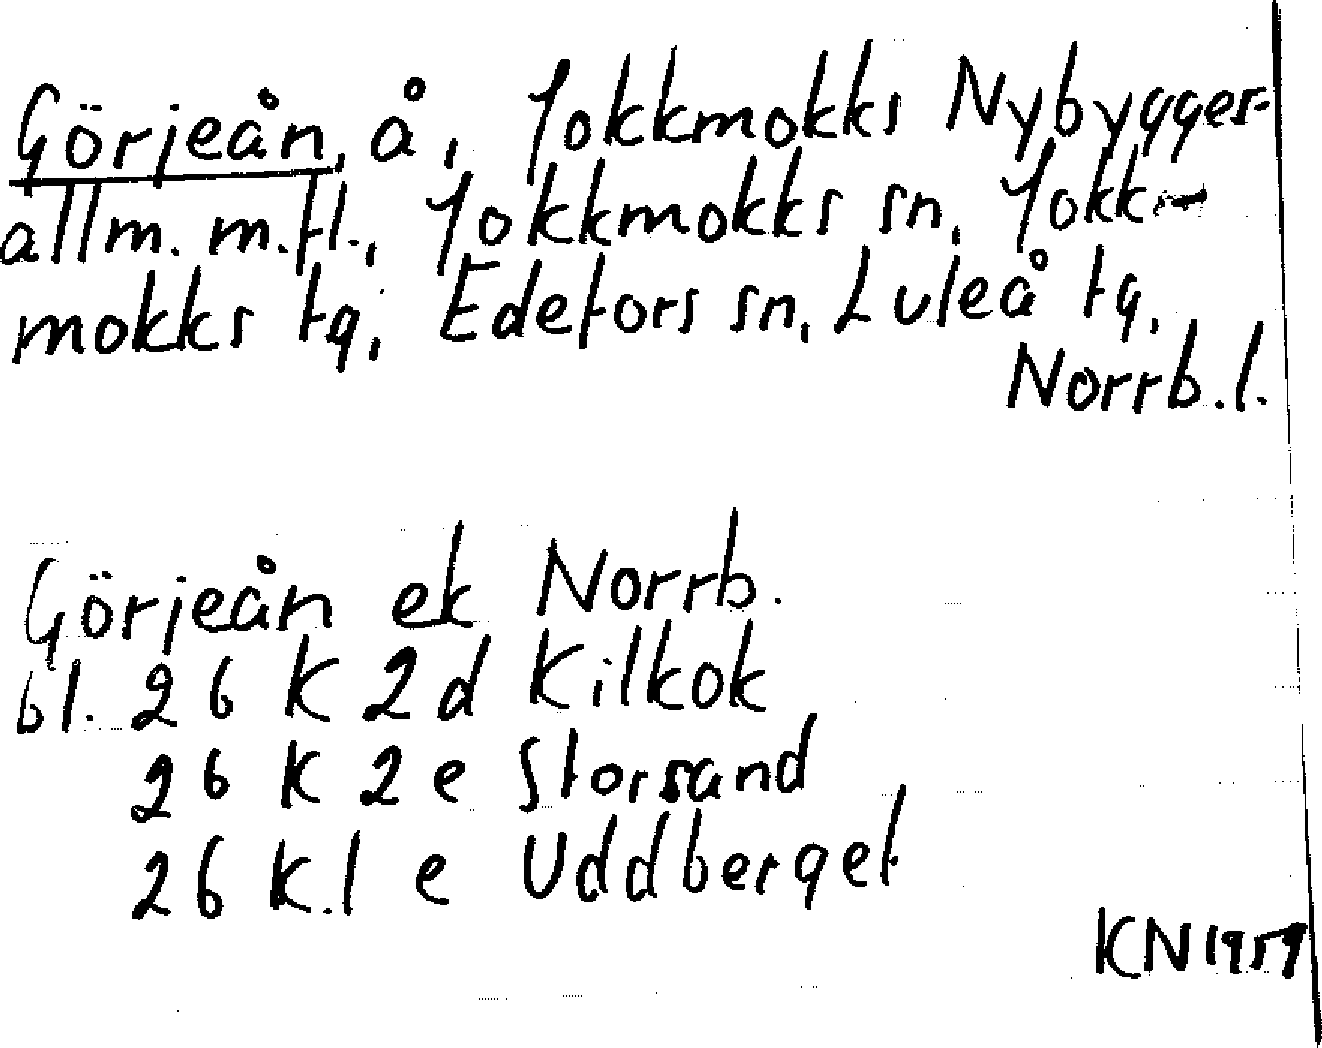 Görjeån, å, Jokkmokks Nybygges-
allm. m.fl., Jokkmokks sn, Jokk-
mokks tg, Edefors sn, Luleå tg,
Norrb.l.
Görjeån ek Norrb.
bl. 26 K 2d Kilkok
26 K 2e Storsand
26 K 1 e Uddberget
KN